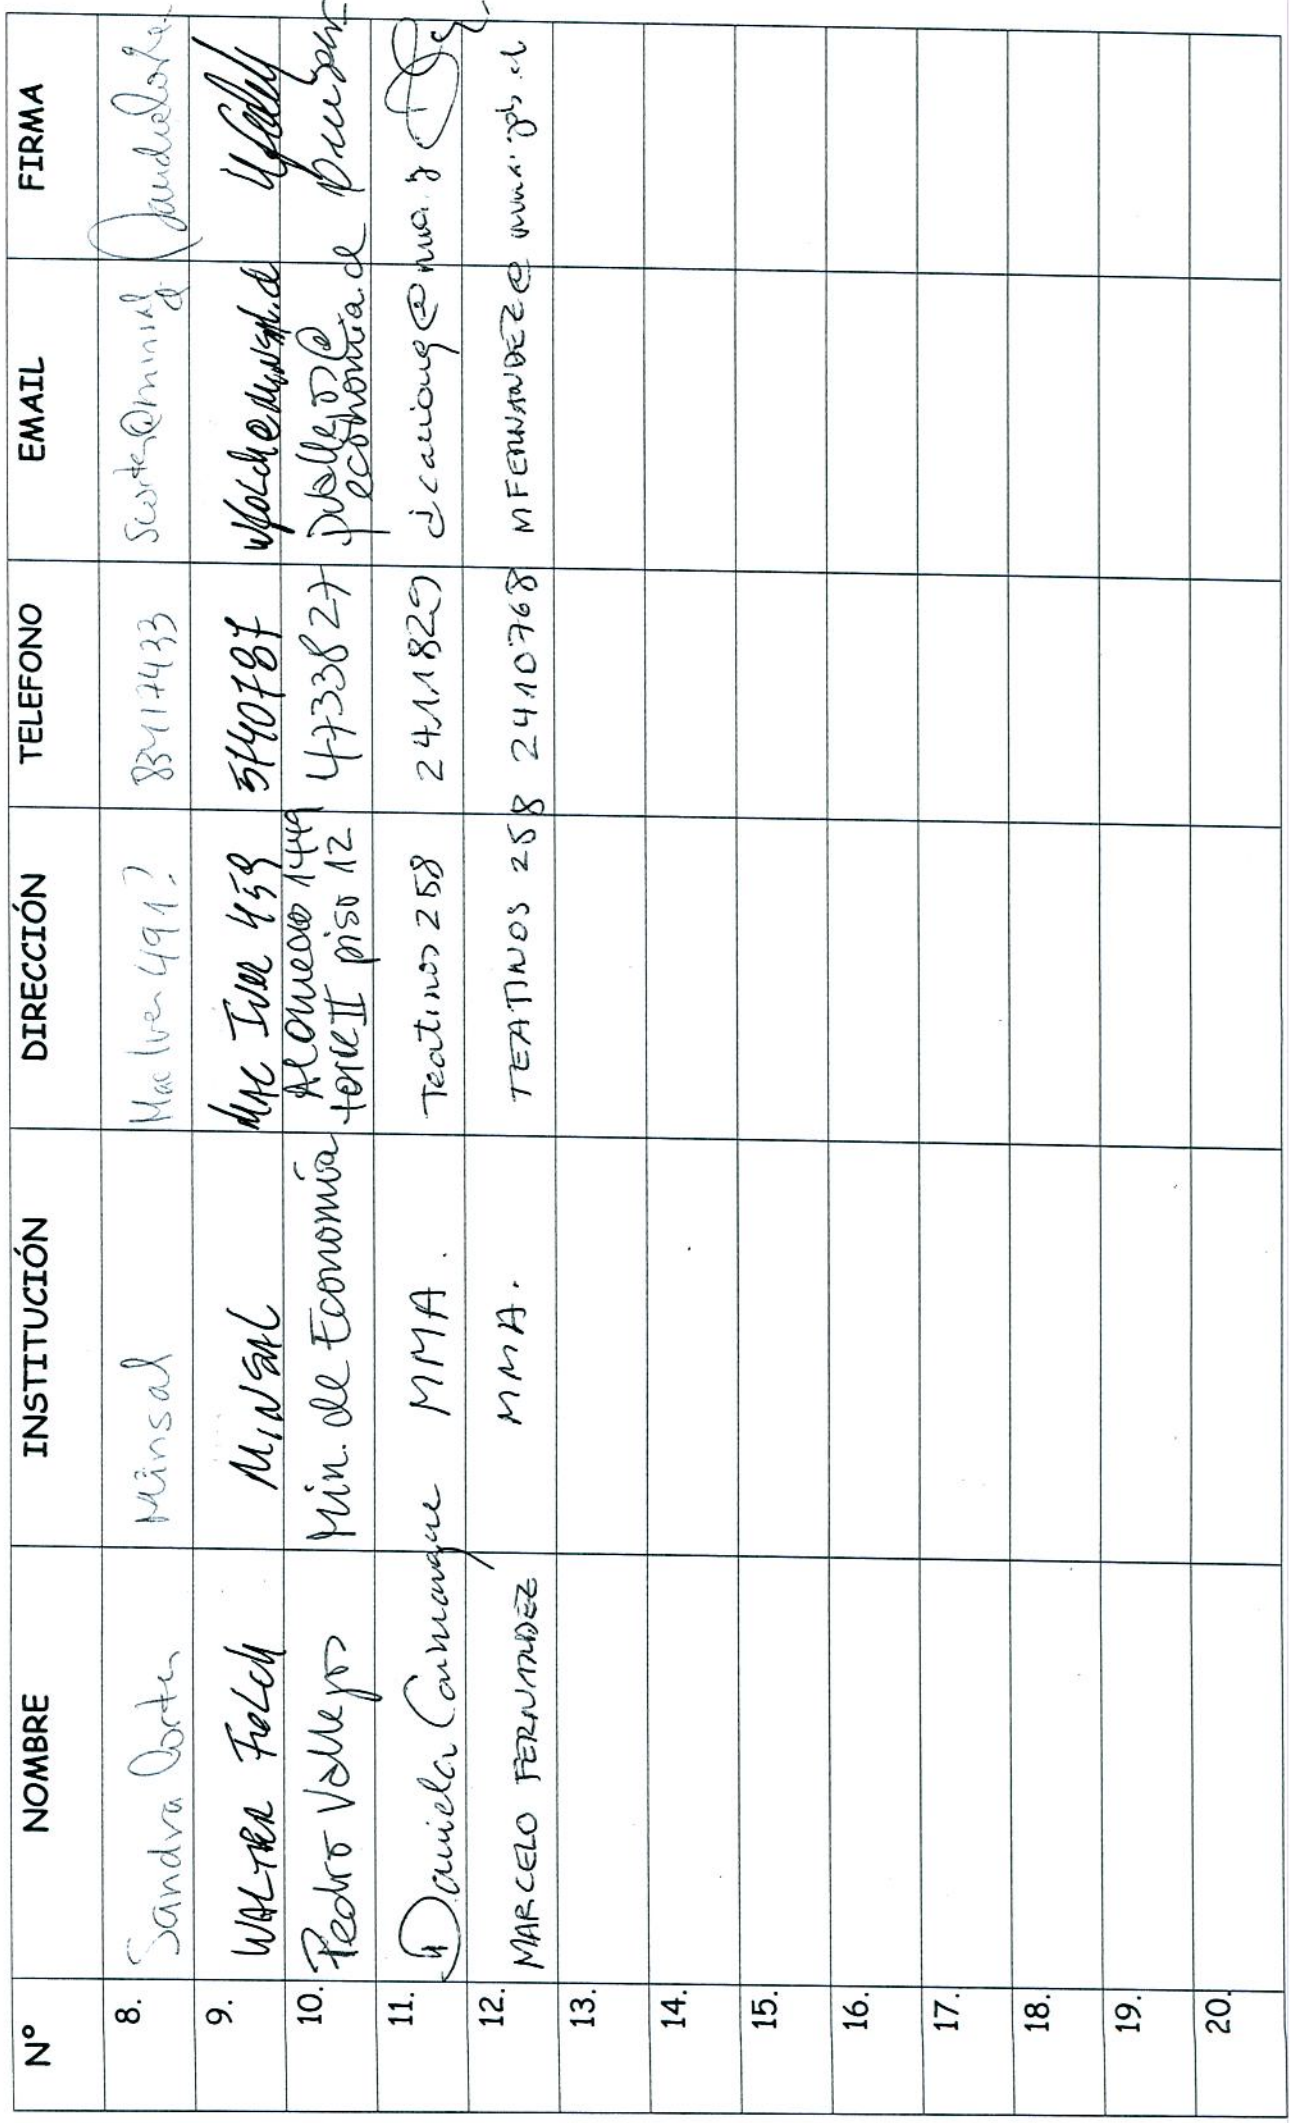 N° NOMBRE INSTITUCIÓN DIRECCIÓN TELEFONO EMAIL FIRMA
8. Sandra Cortes Minsal Mac Iver 491? 83417433
9. WALTER FOLCH MINSAL MAC IVER 459 5740787 wfolch@minsal.cl
10. Pedro Vallejos Min. de Economía Alameda 1449 torre II piso 12 4733827 pvallejos@economia.cl
11. Daniela Caimanque MMA. Teatinos 258 2411829
12. MARCELO FERNANDEZ MMA. TEATINOS 258 2410768 MFERNANDEZ@mma.gob.cl
13.
14.
15.
16.
17.
18.
19.
20.